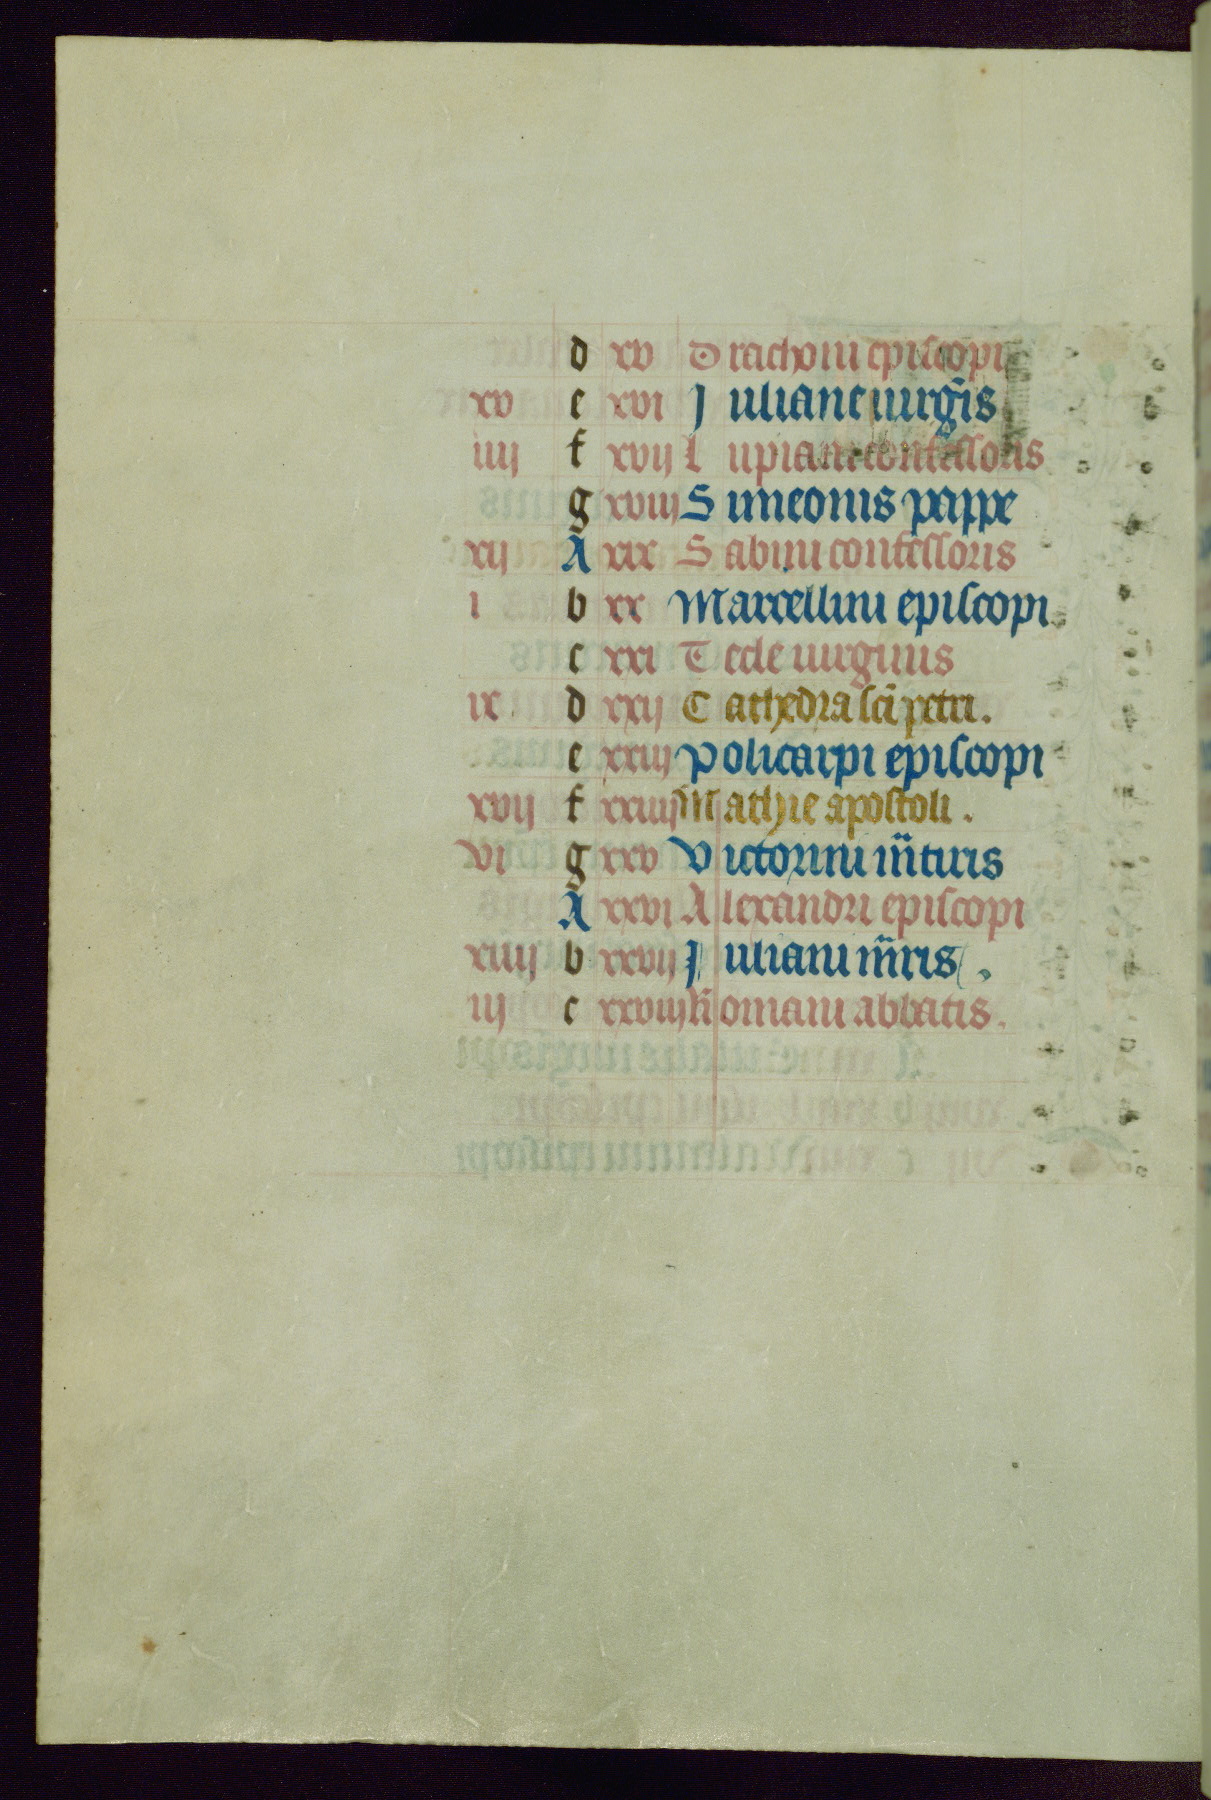 d xv Drachoni episcopi
xv e xvi Juliane uirgīs
iiij f xvij Lupiani confessoris
g xviij Simeonis pappe
xij A xix Sabini confessoris
i b xx Marcellini episcopi
c xxi Tecle uirginis
ix d xxij Cathedra scī petri.
e xxiij Policarpi episcopi
xvij f xxiiij Mathie apostoli.
vi g xxv Victorini m̄turis
A xxvi Alexandri episcopi
xiiij b xxvij Juliani m̄ris.
iij c xxviij Romani abbatis.